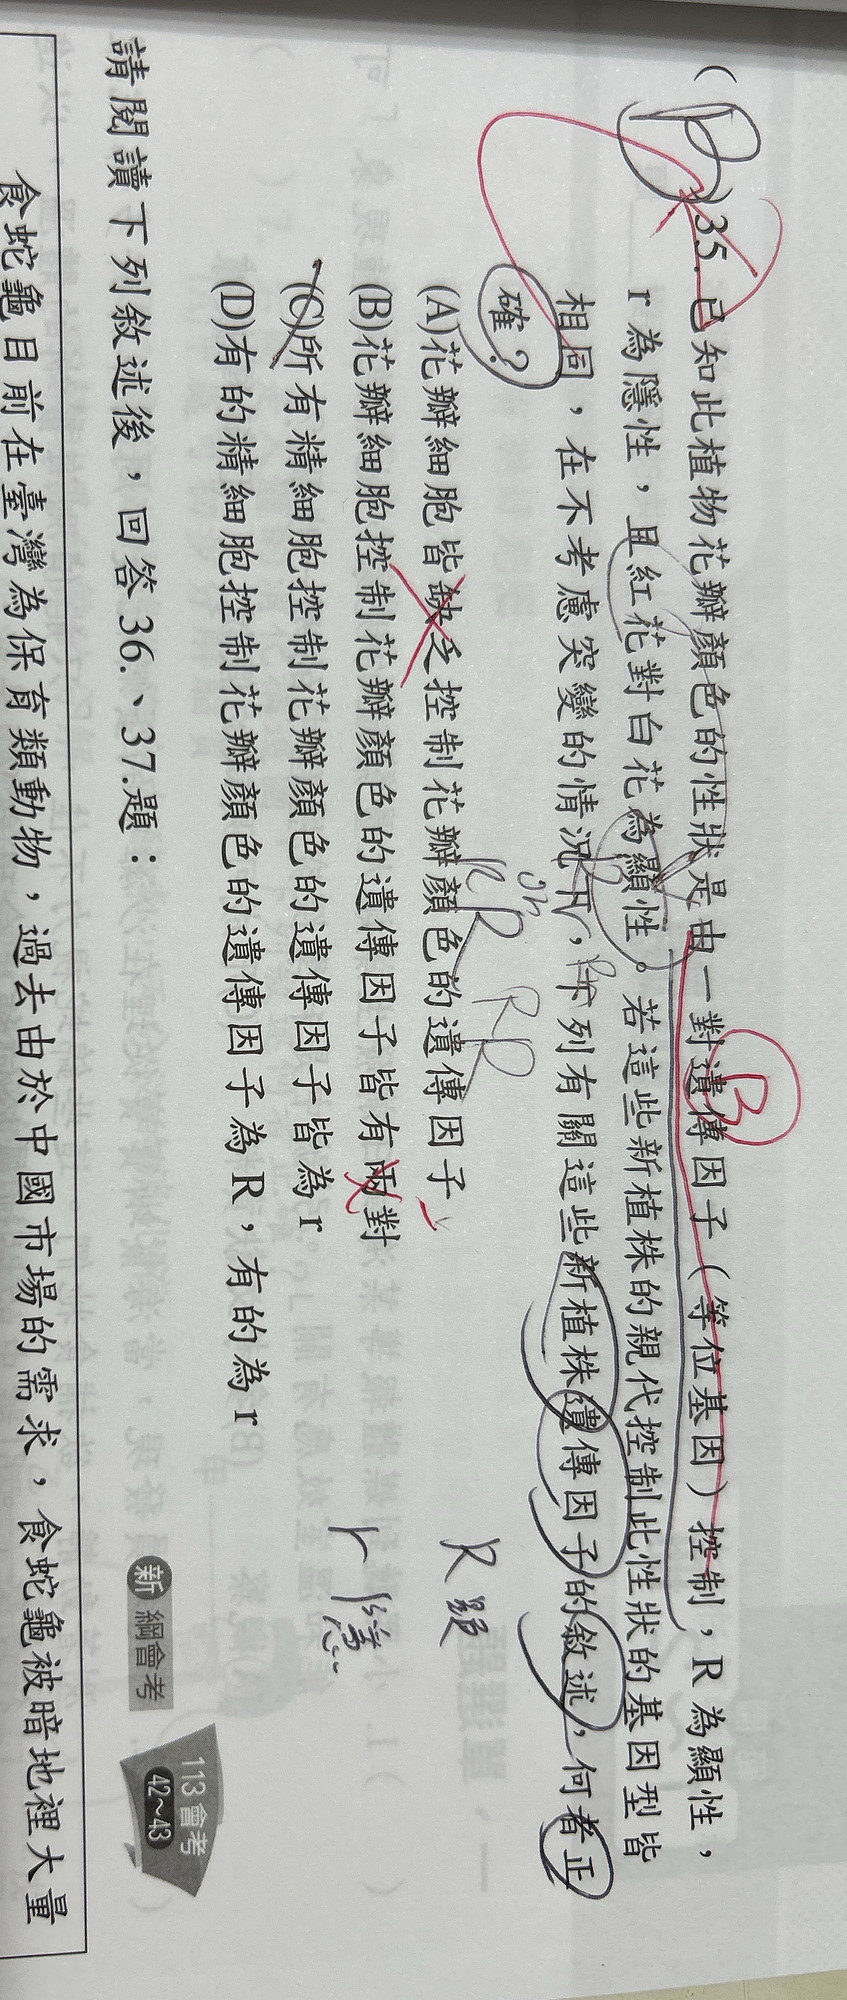 (D)35.已知此植物花瓣顏色的性狀是由一對遺傳因子（等位基因）控制，R為顯性，
B
r為隱性，且紅花對白花為顯性。若這些新植株的親代控制此性狀的基因型皆
相同，在不考慮突變的情況下，下列有關這些新植株遺傳因子的敘述，何者正
確？
(A)花瓣細胞皆缺乏控制花瓣顏色的遺傳因子
R顯
(B)花瓣細胞控制花瓣顏色的遺傳因子皆有兩對
r隱
(C)所有精細胞控制花瓣顏色的遺傳因子皆為r
(D)有的精細胞控制花瓣顏色的遺傳因子為R，有的為r
新綱會考
113會考
42~43
請閱讀下列敘述後，回答36.、37.題：
食蛇龜目前在臺灣為保育類動物，過去由於中國市場的需求，食蛇龜被暗地裡大量